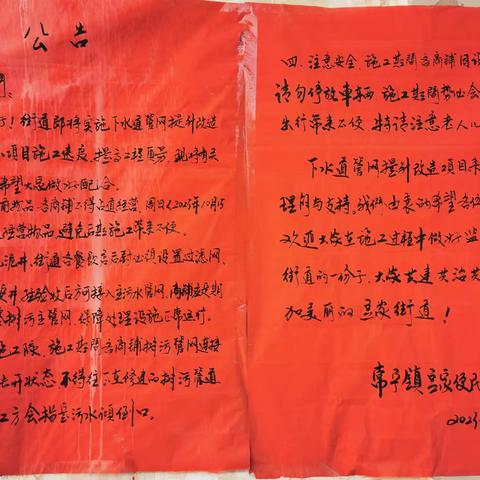 公告
们：
了！街道即将实施下水道管网提升改造
项目施工进度，提高工程质量，现将有关
希望大家做好配合。
商品，各商铺不得占道经营，周日（2023年10月15
经营物品，避免后期施工带来不便。
泥井，街道各餐饮店后厨必须设置过滤网、
井，经验收后方可接入主污水管网，商铺要定期
排污主管网，保障处理设施正常运行。
施工队，施工期间各商铺排污管网连接
开状态，不得往下直修建的排污管道
工方会指定污水倾倒口。
四、注意安全，施工期间各商铺因设
请勿停放车辆，施工期间势必会
出行带来不便，特请注意老人儿
下水道管网提升改造项目来
理解与支持。我们由衷的希望各位
欢迎大家在施工过程中做好监
街道的一份子，大家共建共治共
加美丽的 街道！
镇 便民
2023年